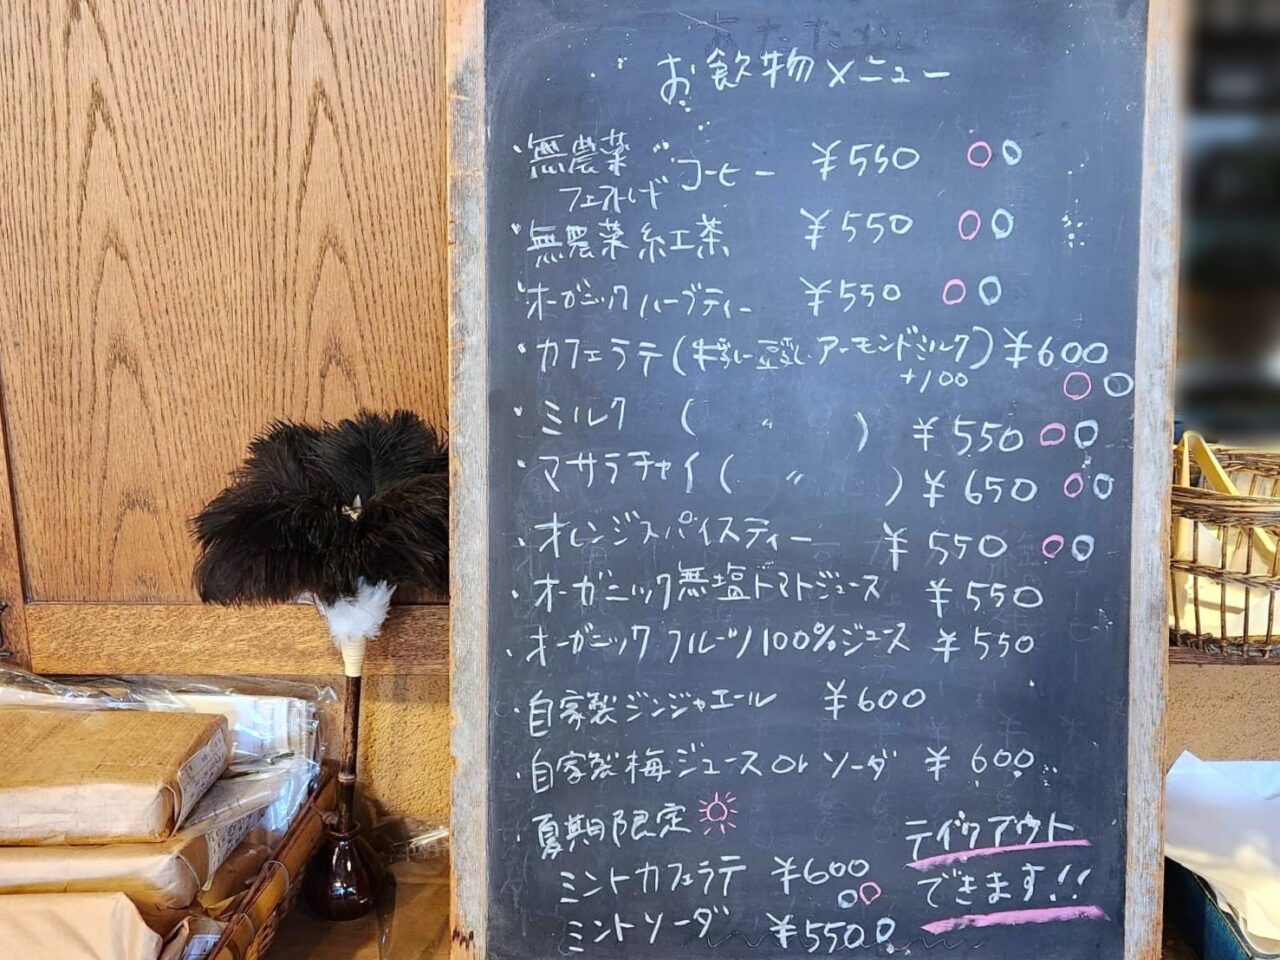 お飲物メニュー
・無農薬 コーヒー ¥550 ○○
フェアトレード
・無農薬紅茶 ¥550 ○○
・オーガニックハーブティー ¥550 ○○
・カフェラテ(牛乳・豆乳・アーモンドミルク) ¥600
+100 ○○
・ミルク ( 〃 ) ¥550 ○○
・マサラチャイ( 〃 ) ¥650 ○○
・オレンジスパイスティー ¥550 ○○
・オーガニック無塩トマトジュース ¥550
・オーガニックフルーツ100%ジュース ¥550
・自家製ジンジャエール ¥600
・自家製梅ジュース or ソーダ ¥600
・夏期限定
ミントカフェラテ ¥600
○○
ミントソーダ ¥550 ○
テイクアウト
できます!!